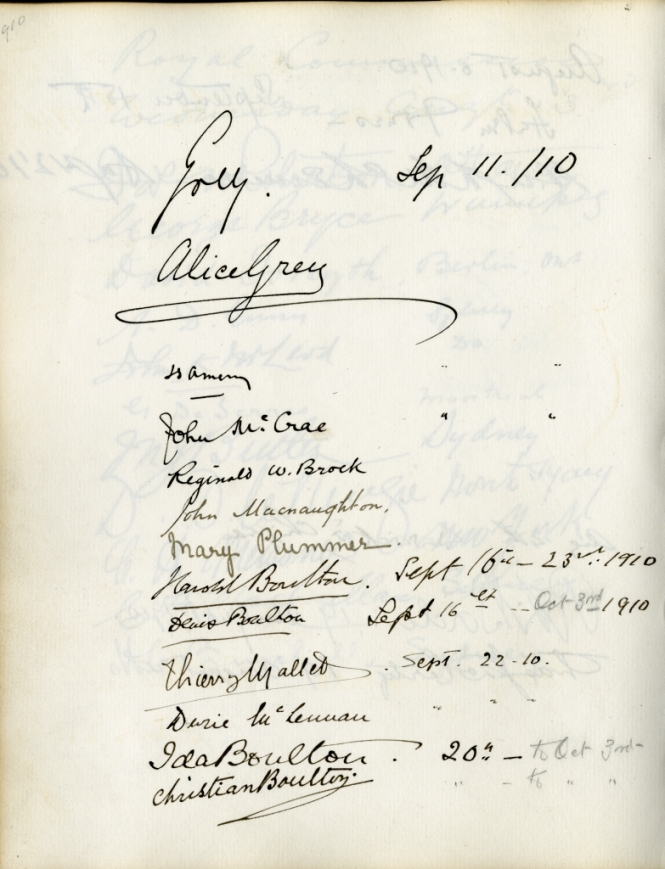 Grey. Sep 11. /10
Alice Grey
" "
John McCrae " "
Reginald W. Brock
John Macnaughton.
Mary Plummer.
Harold Boulton. Sept 16th – 23rd: 1910
Denis Boulton Sept 16th – Oct 3rd 1910
Thierry Mallet. Sept. 22-10.
Durie McLennan " " "
Ida Boulton. 20th – to Oct 3rd –
Christian Boulton. " – to " "